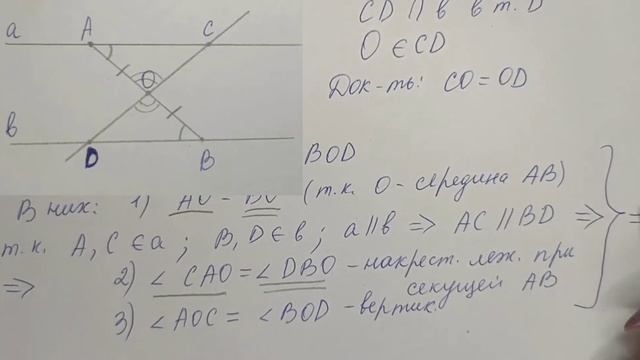 a A C
O
b
D B
CD ∩ b в т. D
O ∈ CD
Док-ть: CO = OD
BOD
В них: 1) AO = BO (т.к. O - середина AB)
т.к. A, C ∈ a ; B, D ∈ b ; a ∥ b ⇒ AC ∥ BD ⇒
⇒ 2) ∠ CAO = ∠ DBO - накрест. леж. при
секущей AB
3) ∠ AOC = ∠ BOD - вертик.